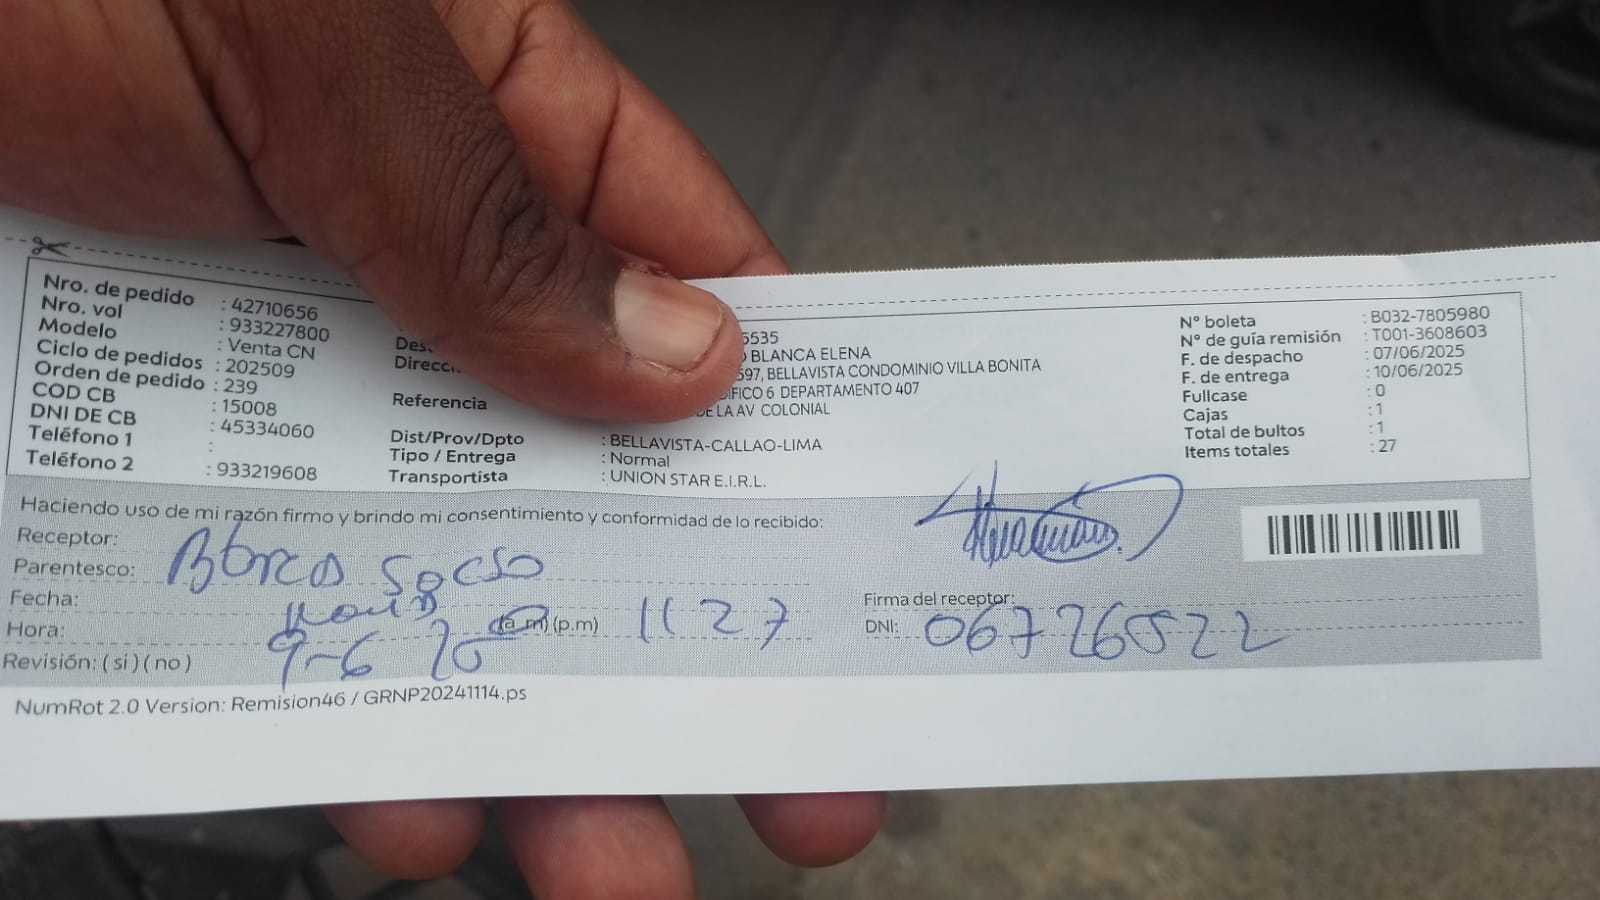 Nro. de pedido : 42710656
Nro. vol : 933227800
Modelo : Venta CN
Ciclo de pedidos : 202509
Orden de pedido : 239
COD CB : 15008
DNI DE CB : 45334060
Teléfono 1 :
Teléfono 2 : 933219608
5535
BLANCA ELENA
Direcc
597, BELLAVISTA CONDOMINIO VILLA BONITA
IFICO 6 DEPARTAMENTO 407
Referencia DE LA AV COLONIAL
Dist/Prov/Dpto : BELLAVISTA-CALLAO-LIMA
Tipo / Entrega : Normal
Transportista : UNION STAR E.I.R.L.
N° boleta : B032-7805980
N° de guía remisión : T001-3608603
F. de despacho : 07/06/2025
F. de entrega : 10/06/2025
Fullcase : 0
Cajas : 1
Total de bultos : 1
Items totales : 27
Haciendo uso de mi razón firmo y brindo mi consentimiento y conformidad de lo recibido:
Receptor:
Parentesco:
Fecha:
Hora: (a.m) (p.m) 11 27
9-6
Revisión: ( si ) ( no )
Firma del receptor:
DNI: 06726522
NumRot 2.0 Version: Remision46 / GRNP20241114.ps